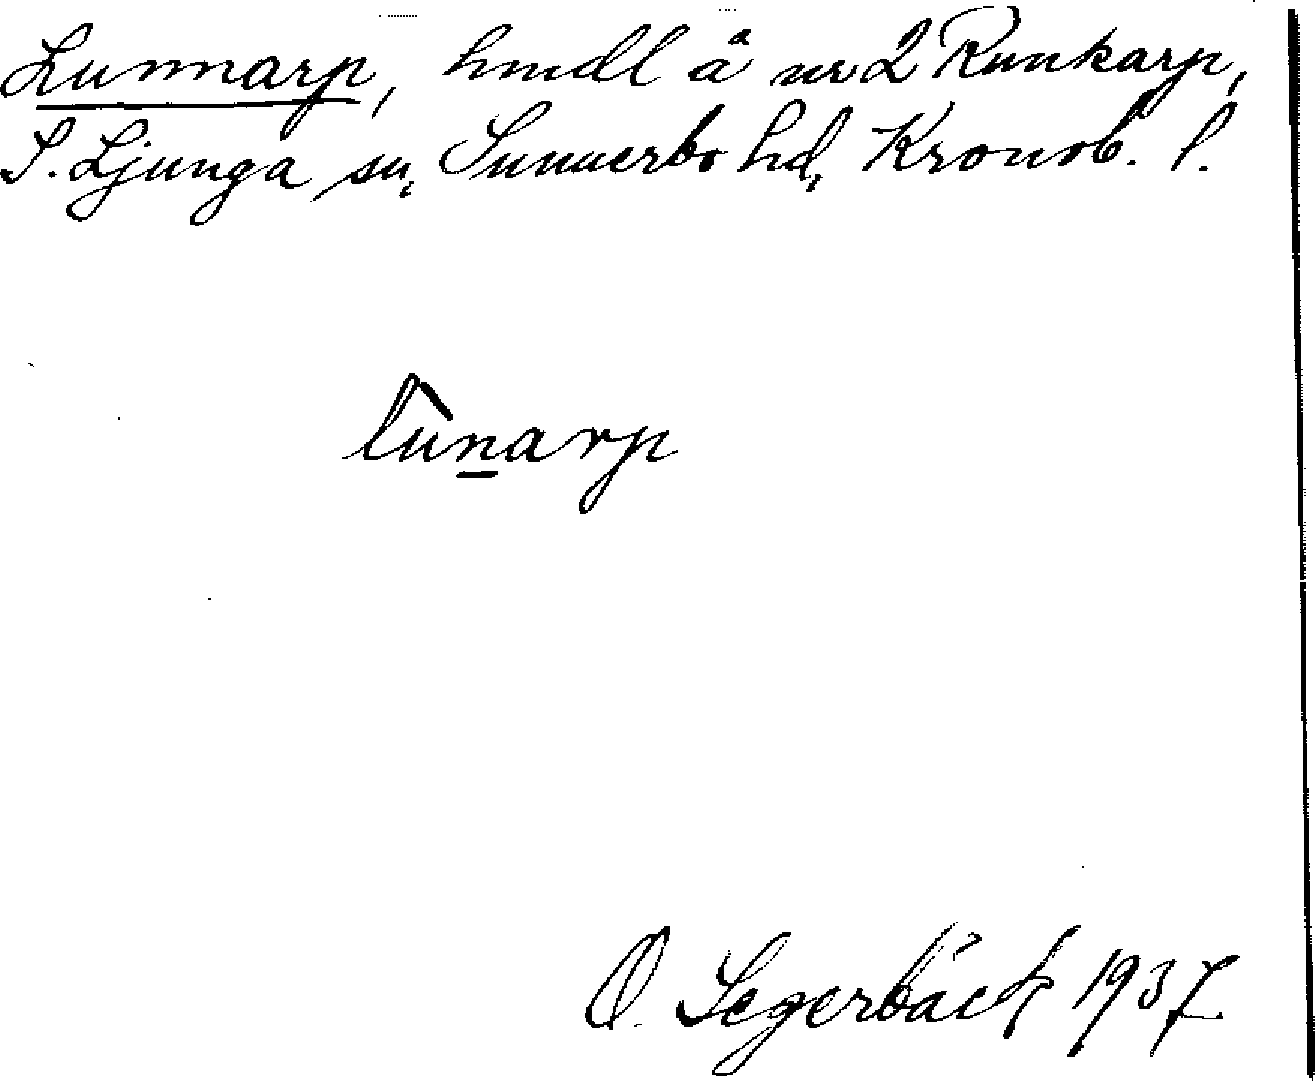 Lunnarp, hmdl å nr 2 Runkarp,
S. Ljunga sn, Sunnerbo hd, Kronob. l.
lùn̲arp
O. Segerbäck 1937